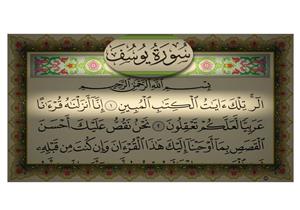 سورة يوسف
بسم الله الرحمن الرحيم
الٓر ۚ تِلْكَ ءَايَٰتُ ٱلْكِتَٰبِ ٱلْمُبِينِ ١ إِنَّآ أَنزَلْنَٰهُ قُرْءَٰنًا
عَرَبِيًّا لَّعَلَّكُمْ تَعْقِلُونَ ٢ نَحْنُ نَقُصُّ عَلَيْكَ أَحْسَنَ
ٱلْقَصَصِ بِمَآ أَوْحَيْنَآ إِلَيْكَ هَٰذَا ٱلْقُرْءَانَ وَإِن كُنتَ مِن قَبْلِهِۦ